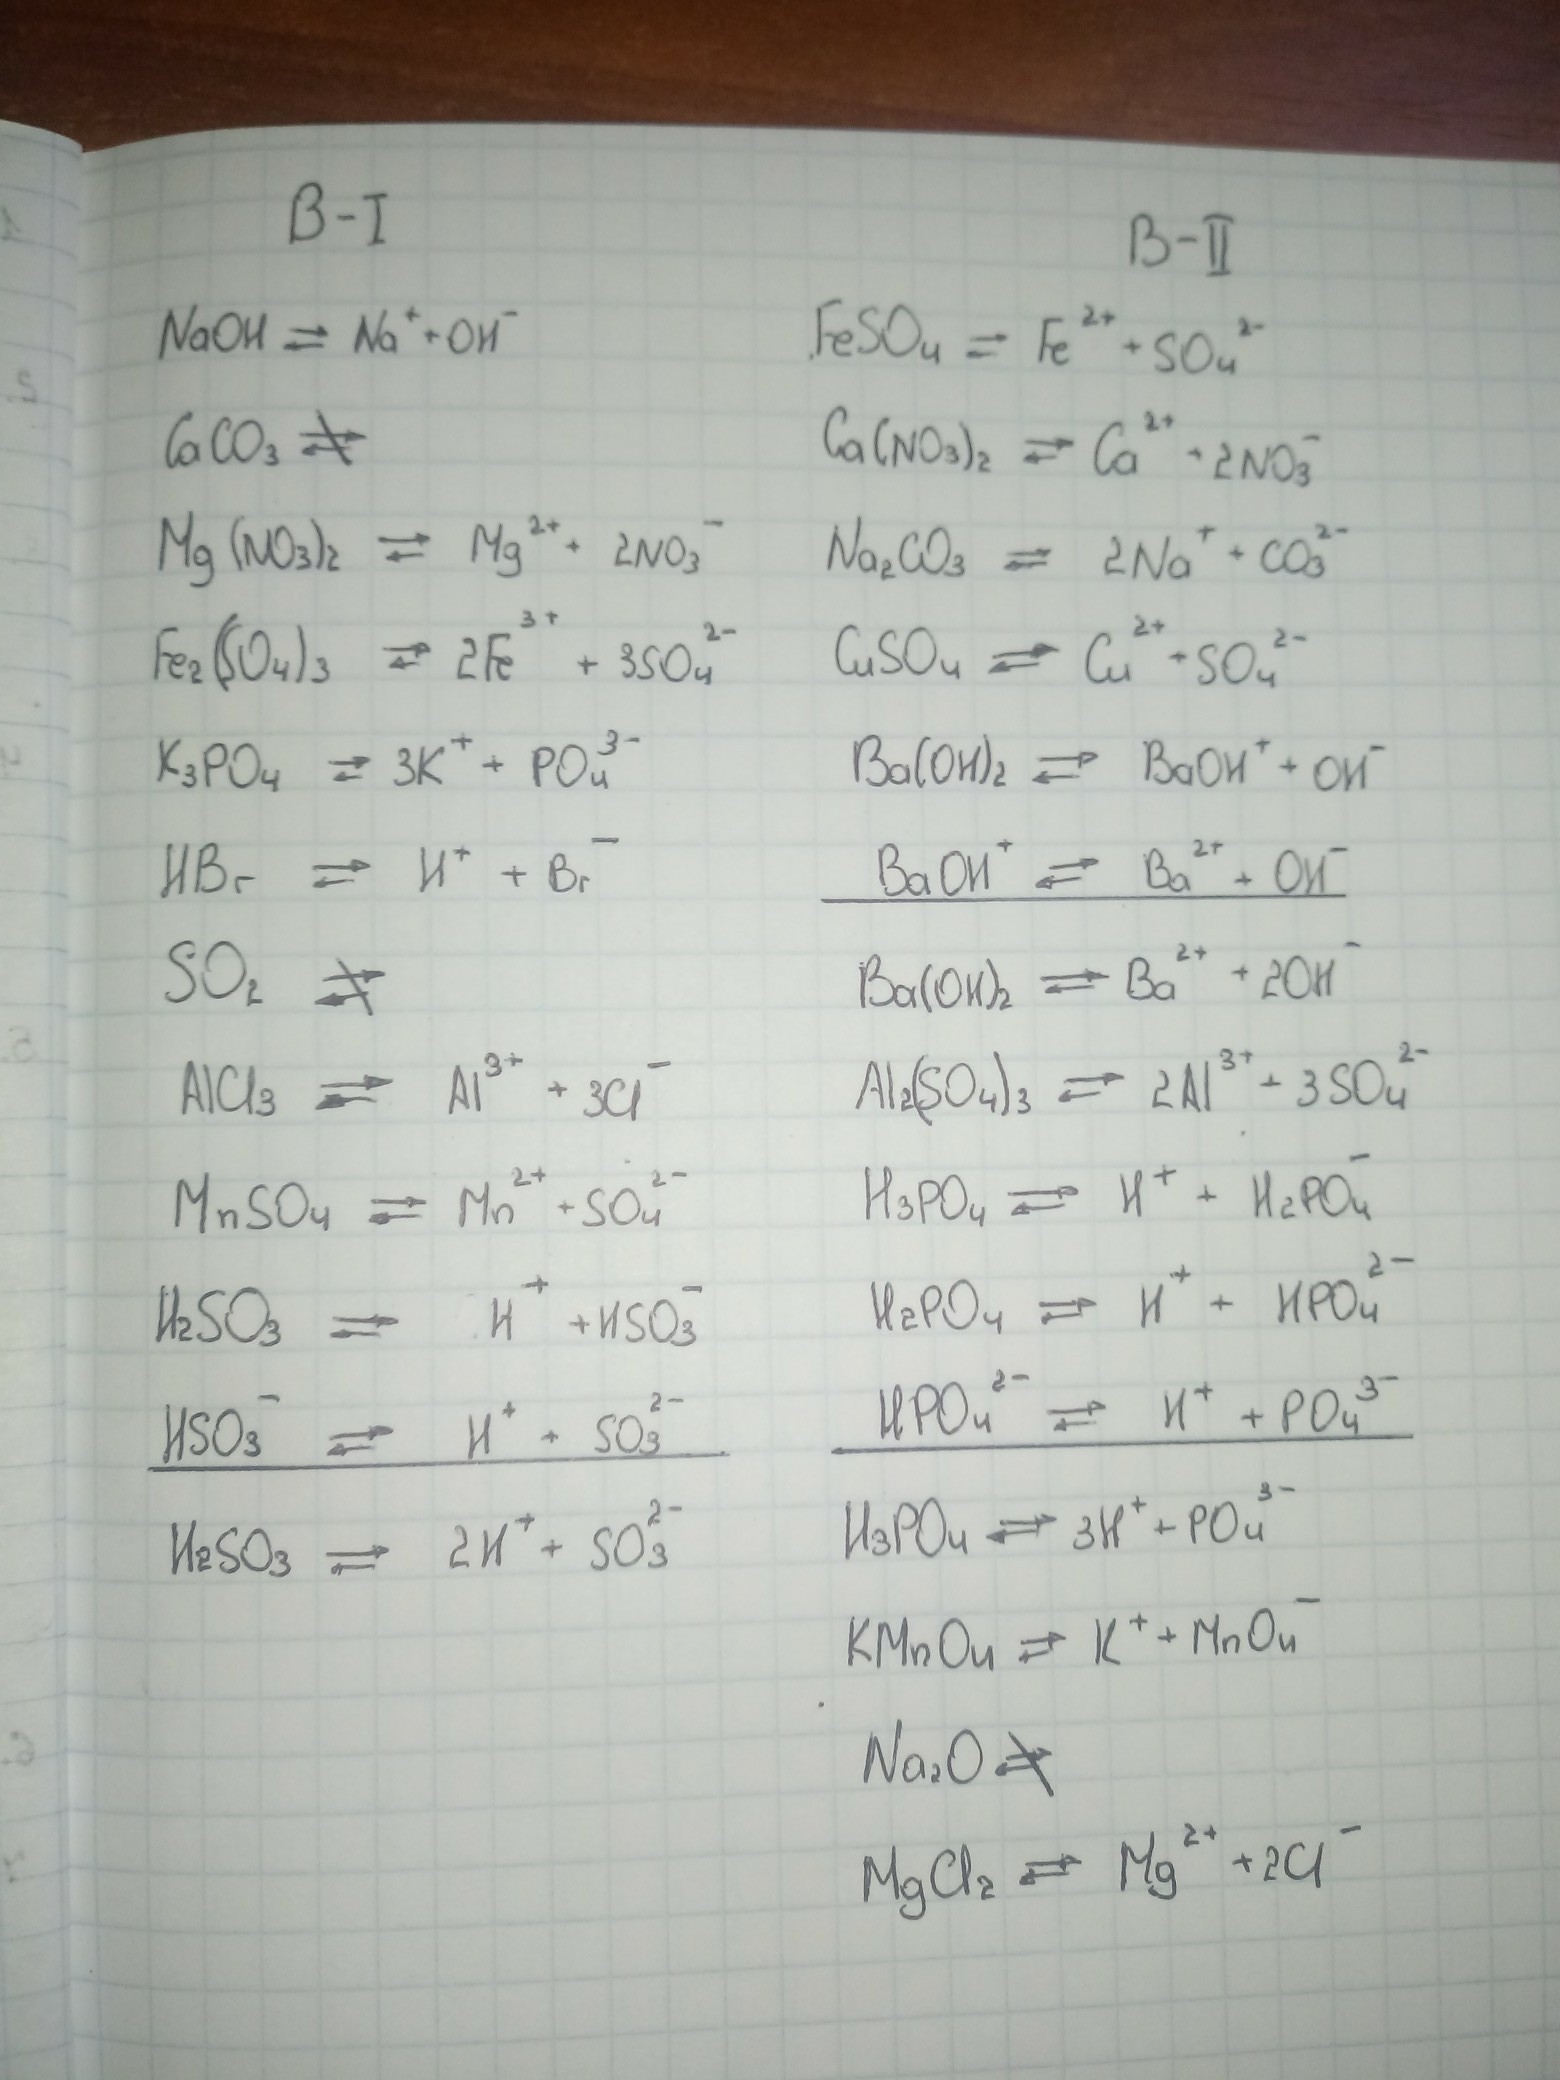 B-I
NaOH ⇌ Na⁺ + OH⁻
CaCO₃ ⇌̸
Mg(NO₃)₂ ⇌ Mg²⁺ + 2NO₃⁻
Fe₂(SO₄)₃ ⇌ 2Fe³⁺ + 3SO₄²⁻
K₃PO₄ ⇌ 3K⁺ + PO₄³⁻
HBr ⇌ H⁺ + Br⁻
SO₂ ⇌̸
AlCl₃ ⇌ Al³⁺ + 3Cl⁻
MnSO₄ ⇌ Mn²⁺ + SO₄²⁻
H₂SO₃ ⇌ H⁺ + HSO₃⁻
HSO₃⁻ ⇌ H⁺ + SO₃²⁻
H₂SO₃ ⇌ 2H⁺ + SO₃²⁻
B-II
FeSO₄ ⇌ Fe²⁺ + SO₄²⁻
Ca(NO₃)₂ ⇌ Ca²⁺ + 2NO₃⁻
Na₂CO₃ ⇌ 2Na⁺ + CO₃²⁻
CuSO₄ ⇌ Cu²⁺ + SO₄²⁻
Ba(OH)₂ ⇌ BaOH⁺ + OH⁻
BaOH⁺ ⇌ Ba²⁺ + OH⁻
Ba(OH)₂ ⇌ Ba²⁺ + 2OH⁻
Al₂(SO₄)₃ ⇌ 2Al³⁺ + 3SO₄²⁻
H₃PO₄ ⇌ H⁺ + H₂PO₄⁻
H₂PO₄ ⇌ H⁺ + HPO₄²⁻
HPO₄²⁻ ⇌ H⁺ + PO₄³⁻
H₃PO₄ ⇌ 3H⁺ + PO₄³⁻
KMnO₄ ⇌ K⁺ + MnO₄⁻
Na₂O ⇌̸
MgCl₂ ⇌ Mg²⁺ + 2Cl⁻